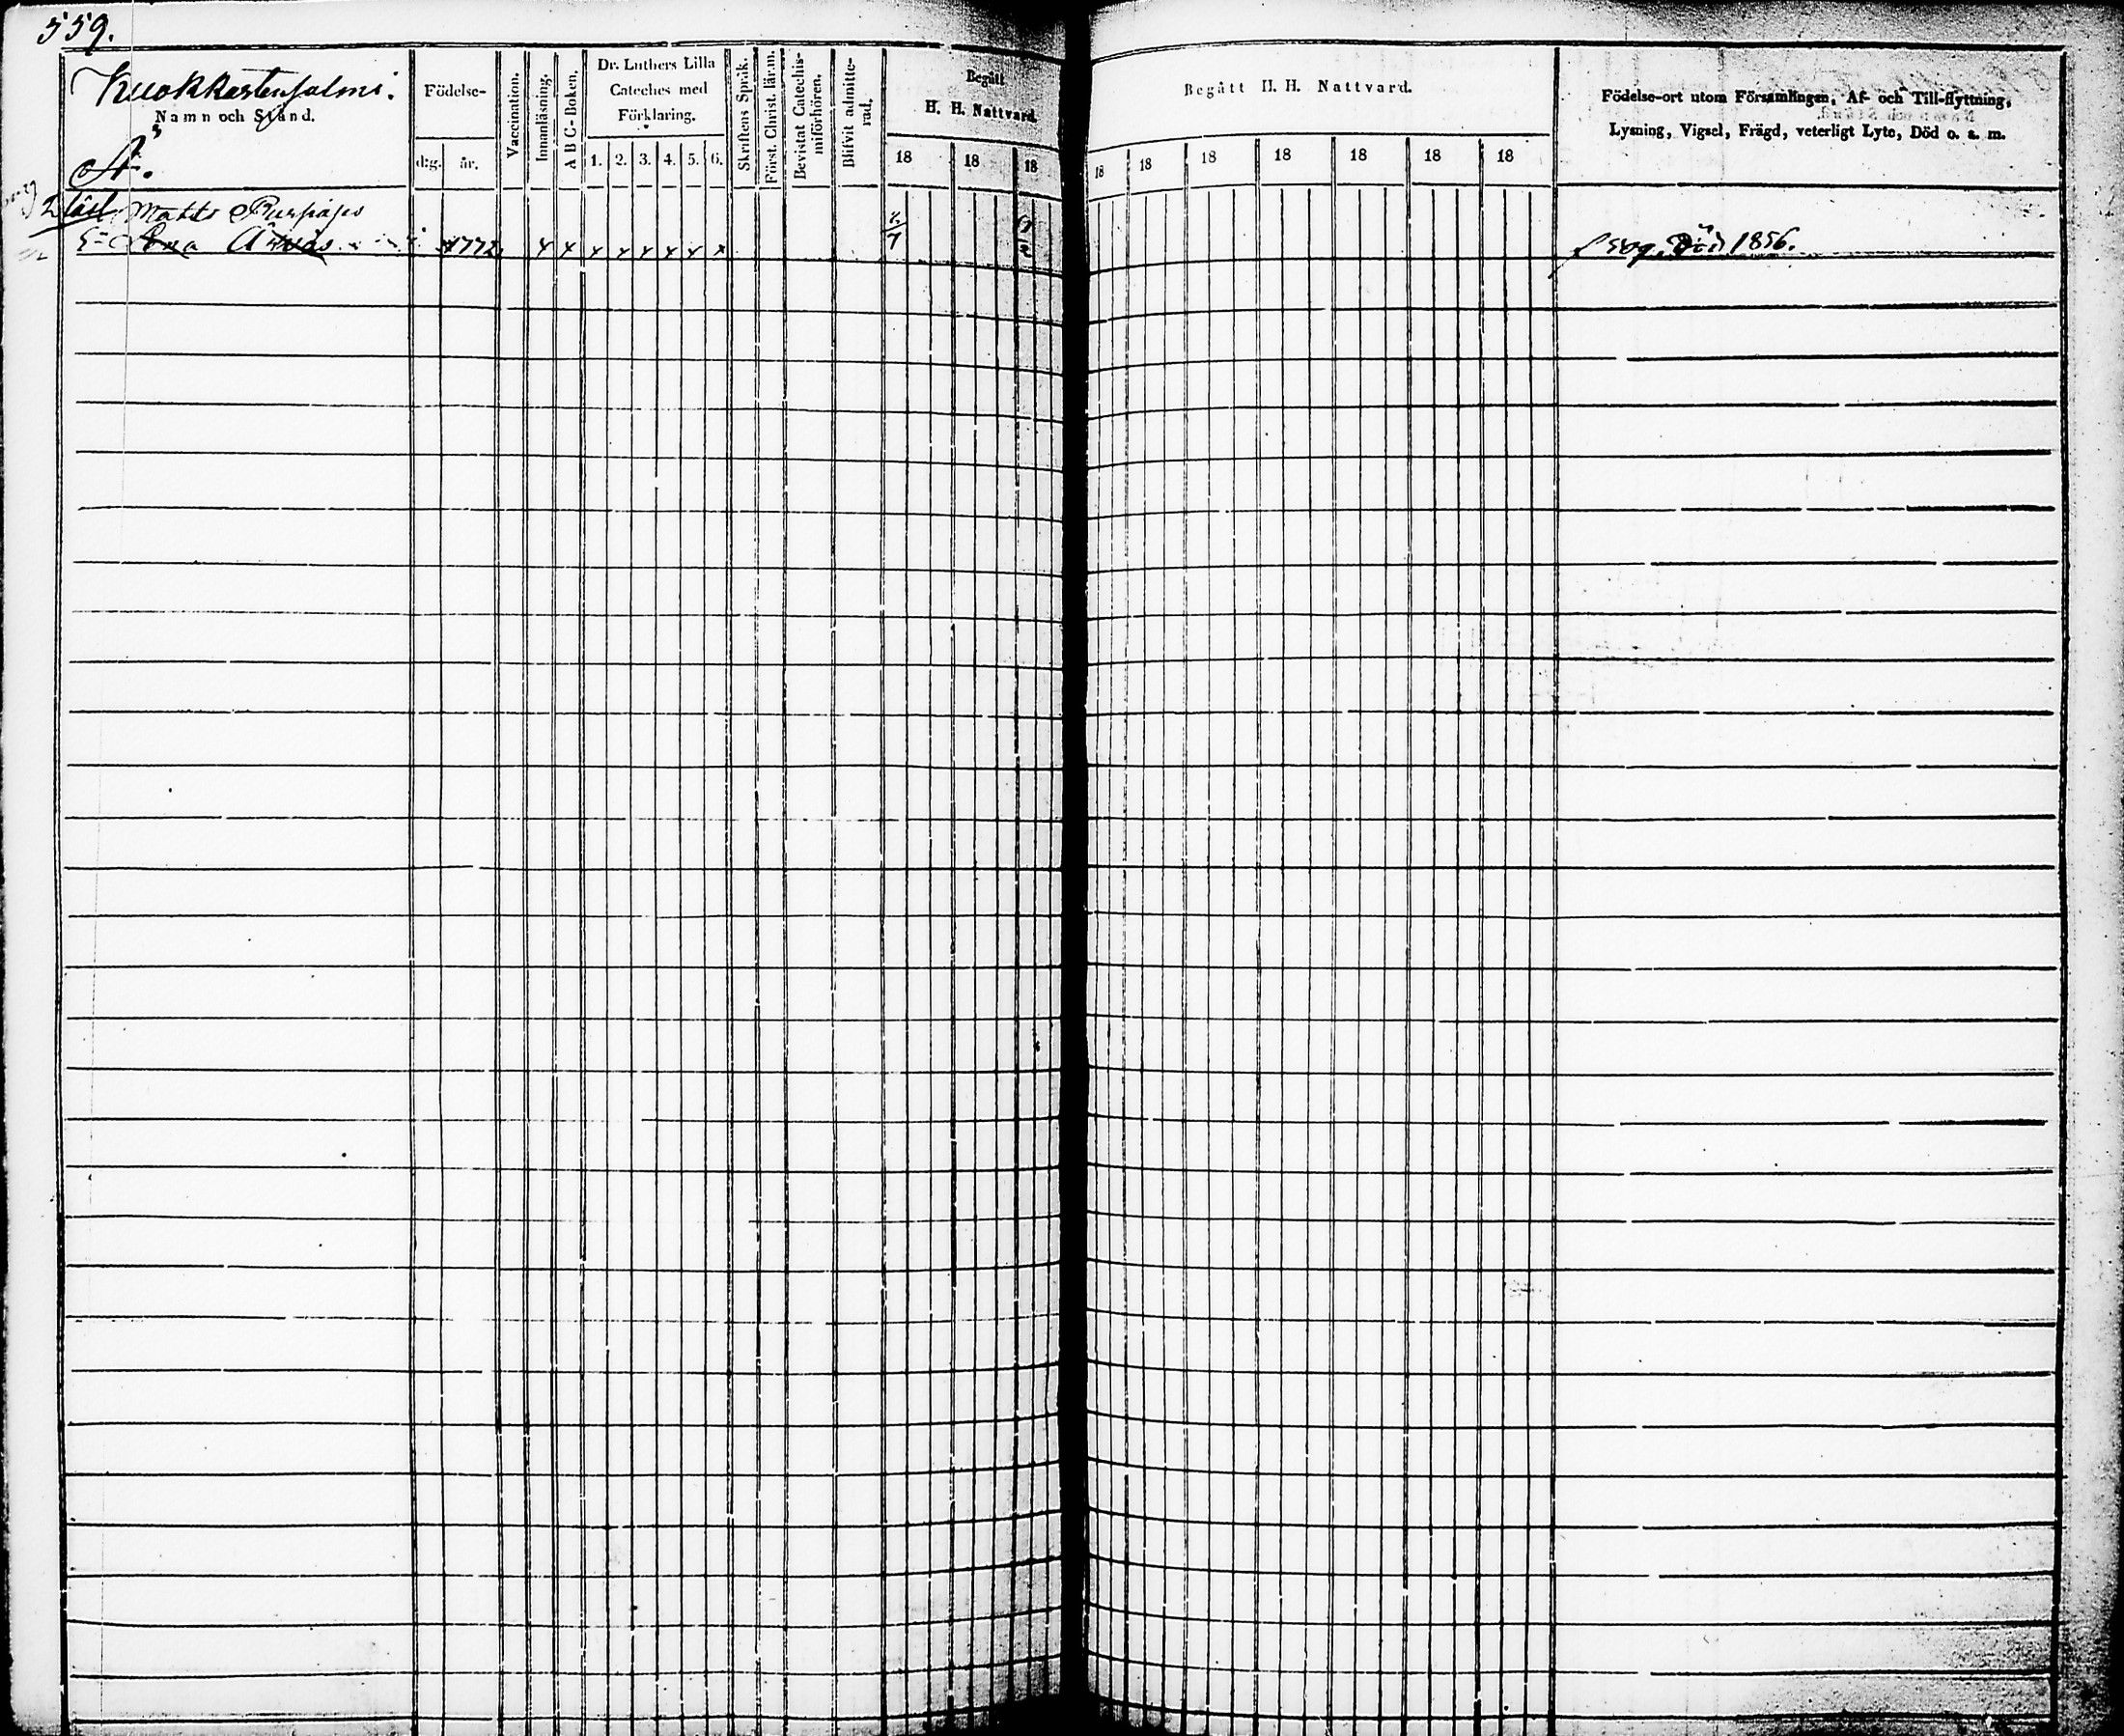 559.
Kuokkastensalmi.
Namn och Stånd.
A.
Födelse-
dag. år.
Vaccination.
Innanläsning.
A B C-Boken.
Dr. Luthers Lilla
Cateches med
Förklaring.
1. 2. 3. 4. 5. 6.
Skriftens Språk.
Först. Christ. lär:m.
Bevistat Catechis-
miförhören.
Blifvit admitte-
rad.
Begått
H. H. Nattvard.
18 18 18
Begått H. H. Nattvard.
18 18 18 18 18 18 18
Födelse-ort utom Församlingen, Af- och Till-flyttning,
Lysning, Vigsel, Frägd, veterligt Lyte, Död o. s. m.
Matts
E. Anna 1772 x x x x x x x x
Död 1856.